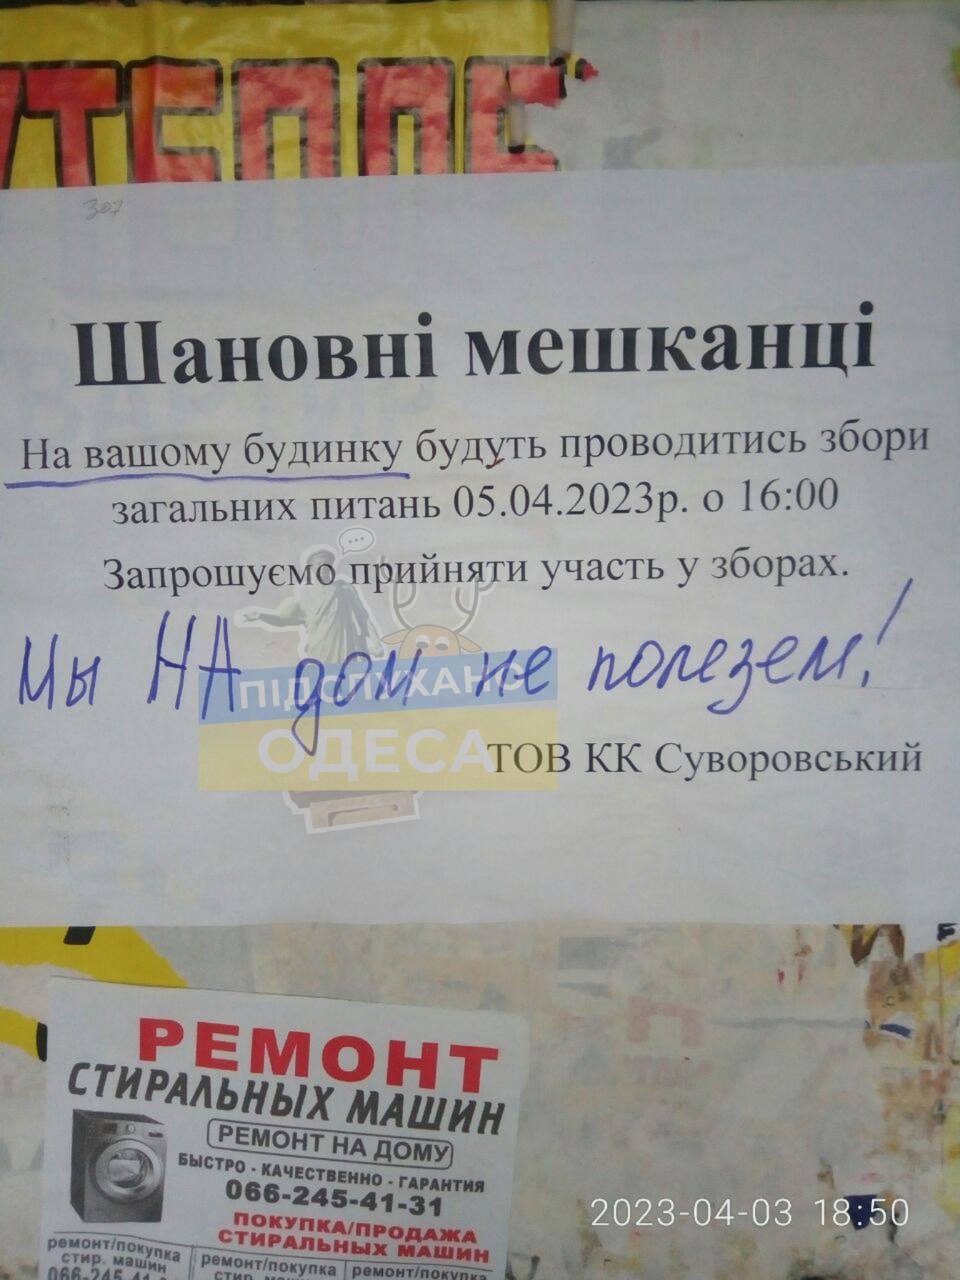 УТЕПЛЕ
307
Шановні мешканці
На вашому будинку будуть проводитись збори
загальних питань 05.04.2023р. о 16:00
Запрошуємо прийняти участь у зборах.
Мы НА дом не полезем!
ПІДСЛУХАНО
ОДЕСА
ТОВ КК Суворовський
РЕМОНТ
СТИРАЛЬНЫХ МАШИН
РЕМОНТ НА ДОМУ
БЫСТРО - КАЧЕСТВЕННО - ГАРАНТИЯ
066-245-41-31
ПОКУПКА/ПРОДАЖА
СТИРАЛЬНЫХ МАШИН
2023-04-03 18:50
ремонт/покупка
стир. машин
066-245-41
ремонт/покупка
стир. машин
ремонт/покупка